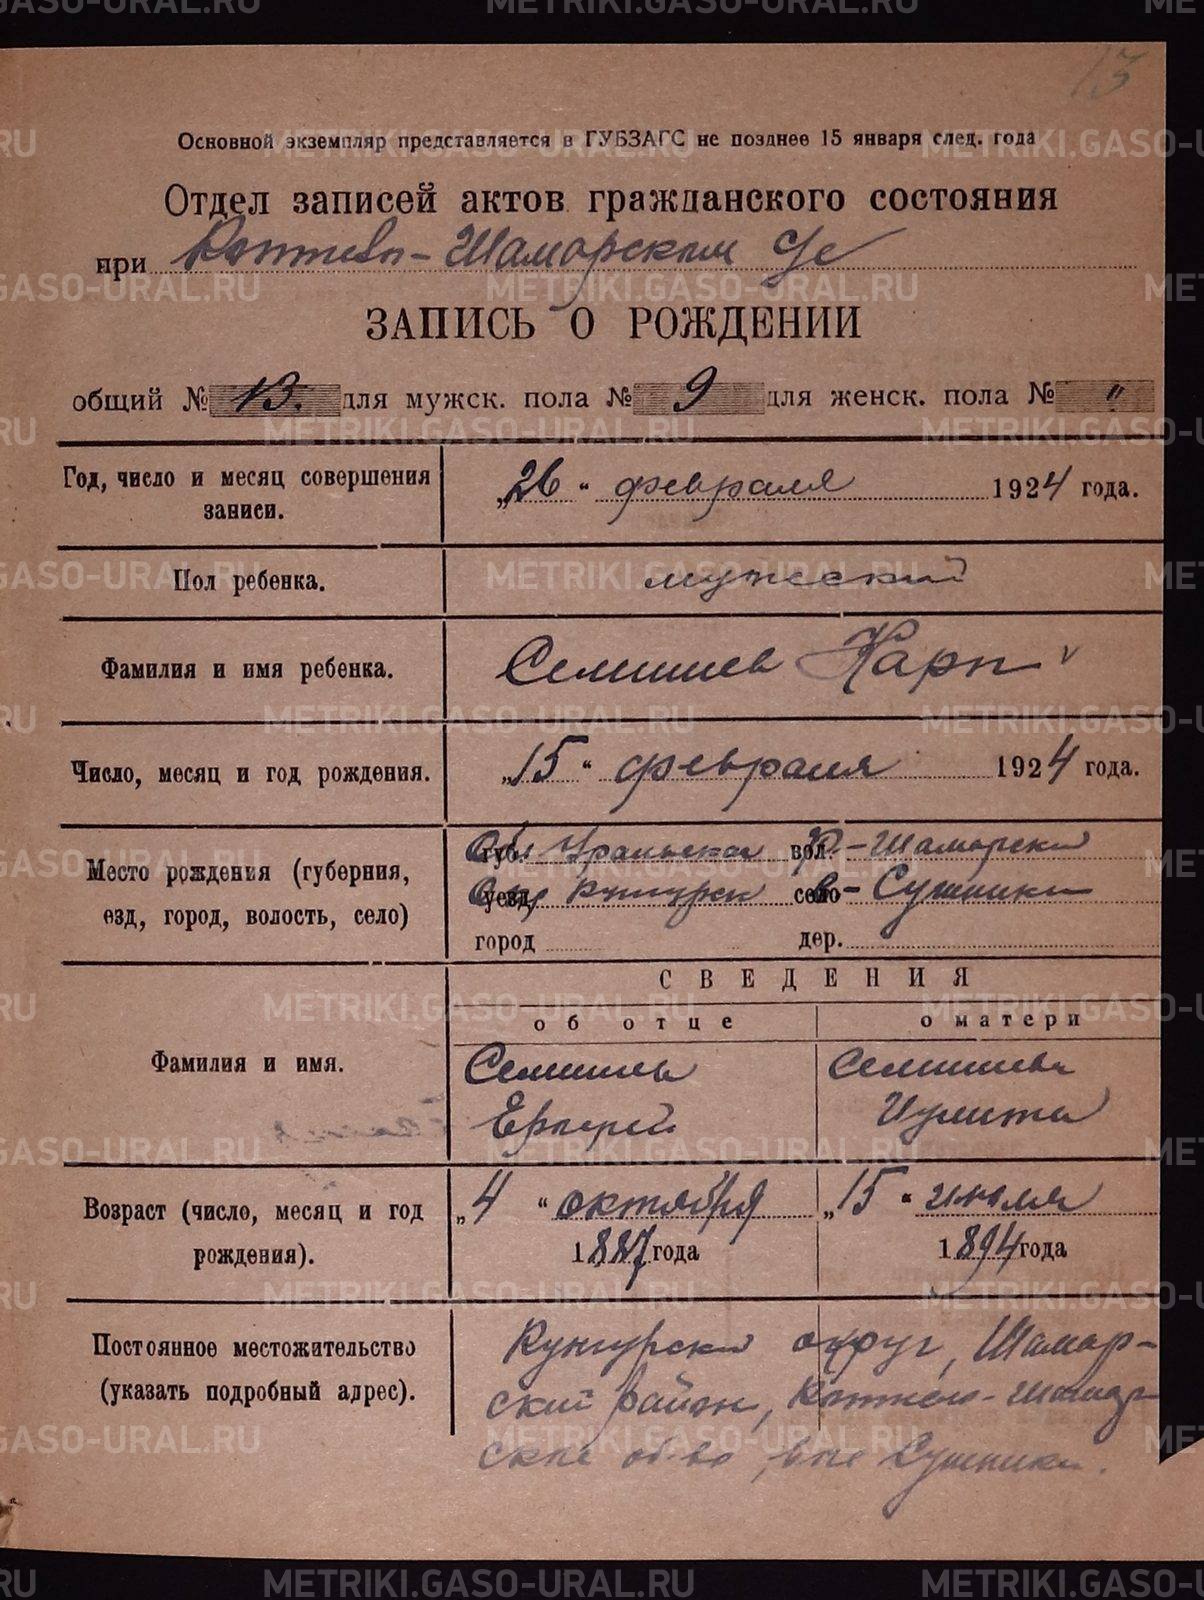 13
Основной экземпляр представляется в ГУБЗАГС не позднее 15 января след. года
Отдел записей актов гражданского состояния
при Коптело-Шаморским с/с
ЗАПИСЬ О РОЖДЕНИИ
общий № 13. для мужск. пола № 9 для женск. пола № "
Год, число и месяц совершения записи.
„26“ февраля 1924 года.
Пол ребенка.
мужеский
Фамилия и имя ребенка.
Семишев Карп v
Число, месяц и год рождения.
„15“ февраля 1924 года.
Место рождения (губерния,
езд, город, волость, село)
губ. Обл Уральская вол. Р.-Шаморский
уезд, Окр Кунгурск село в- Сушинки
город дер.
СВЕДЕНИЯ
об отце о матери
Фамилия и имя.
Семишев Семишева
Ерферей Иулита
Возраст (число, месяц и год
рождения).
„4“ октября 1887 года
„15“ июля 1894 года
Постоянное местожительство
(указать подробный адрес).
Кунгурский округ, Шамар-
ский район,
об-во, Сушинки.
METRIKI.GASO-URAL.RU